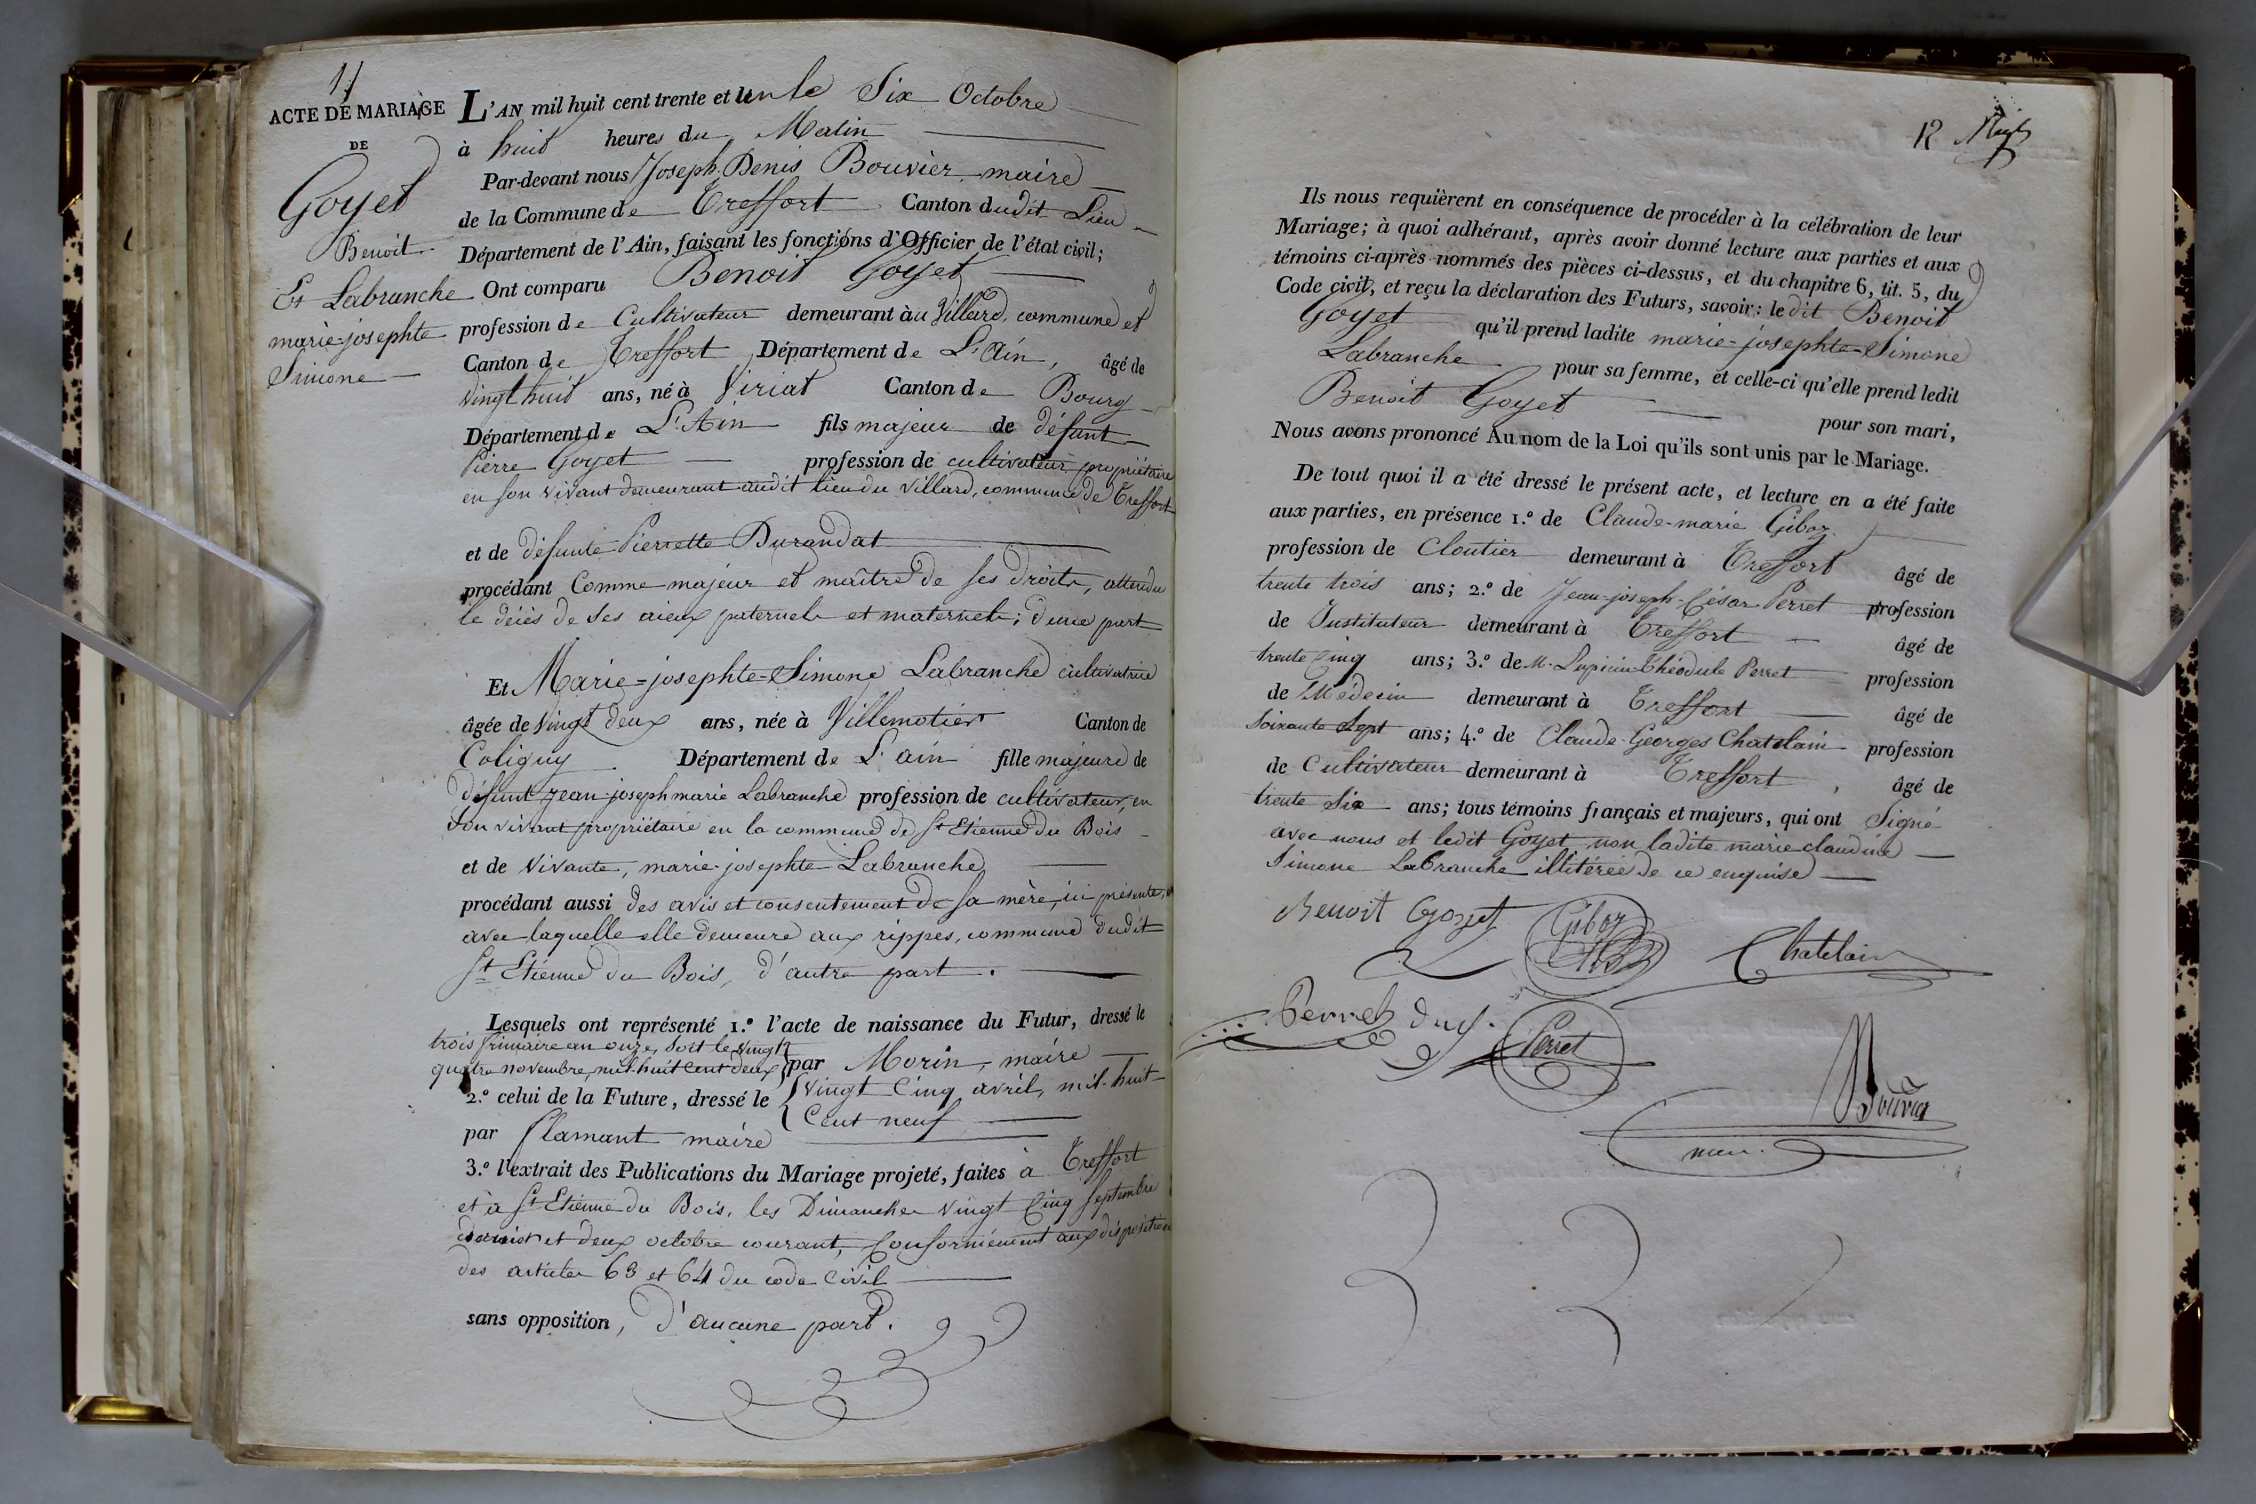 11
ACTE DE MARIAGE
DE
Goyet
Benoit
Et Labranche
marie-josephte
Simone
L'AN mil huit cent trente et un le Six Octobre
à huit heures du Matin
Par-devant nous Joseph Denis Bouvier, maire
de la Commune de Treffort Canton dudit Lieu
Département de l'Ain, faisant les fonctions d'Officier de l'état civil;
Ont comparu Benoit Goyet
profession de Cultivateur demeurant au Villard, commune et
Canton de Treffort Département de L'Ain, âgé de
vingt huit ans, né à Viriat Canton de Bourg
Département de L'Ain fils majeur de défunt
Pierre Goyet profession de cultivateur propriétaire
en son vivant demeurant audit lieu du Villard, commune de Treffort
et de défunte Pierrette Durandat
procédant Comme majeur et maître de ses droits, attendu
le décès de ses aieux paternels et maternels; d'une part
Et Marie-josephte-Simone Labranche cultivatrice
âgée de vingt deux ans, née à Villemotier Canton de
Coligny Département de L'ain fille majeure de
défunt jean-joseph marie Labranche profession de cultivateur, en
son vivant propriétaire en la commune de St Etienne du Bois
et de vivante, marie-josephte Labranche
procédant aussi des avis et consentement de sa mère, ici présente,
avec laquelle elle demeure aux rippes, commune dudit
St Etienne du Bois, d'autre part.
Lesquels ont représenté 1.º l'acte de naissance du Futur, dressé le
trois frimaire an onze, soit le vingt
quatre novembre, mil-huit cent deux par Morin, maire
2.º celui de la Future, dressé le vingt cinq avril, mil-huit-
Cent neuf
par flamant maire
3.º l'extrait des Publications du Mariage projeté, faites à Treffort
et à St Etienne du Bois, les Dimanches vingt cinq septembre
dernier et deux octobre courant, Conformément aux dispositions
des articles 63 et 64 du code civil
sans opposition, d'aucune part.
12
Ils nous requièrent en conséquence de procéder à la célébration de leur
Mariage; à quoi adhérant, après avoir donné lecture aux parties et aux
témoins ci-après nommés des pièces ci-dessus, et du chapitre 6, tit. 5, du
Code civil, et reçu la déclaration des Futurs, savoir: ledit Benoit
Goyet qu'il prend ladite marie-josephte-Simone
Labranche pour sa femme, et celle-ci qu'elle prend ledit
Benoit Goyet pour son mari,
Nous avons prononcé Au nom de la Loi qu'ils sont unis par le Mariage.
De tout quoi il a été dressé le présent acte, et lecture en a été faite
aux parties, en présence 1.º de Claude-marie Giboz
profession de Cloutier demeurant à Treffort âgé de
trente trois ans; 2.º de Jean-joseph-César Perret profession
de Instituteur demeurant à Treffort âgé de
trente cinq ans; 3.º de M. Lupicin-Théodule Perret profession
de Médecin demeurant à Treffort âgé de
soixante sept ans; 4.º de Claude-Georges Chatelain profession
de Cultivateur demeurant à Treffort, âgé de
trente six ans; tous témoins français et majeurs, qui ont Signé
avec nous et ledit Goyet, non ladite marie claudine
Simone Labranche illitérée de ce enquise
Benoit Goyet Giboz
Chatelain
Perret
Perret
Bouvier